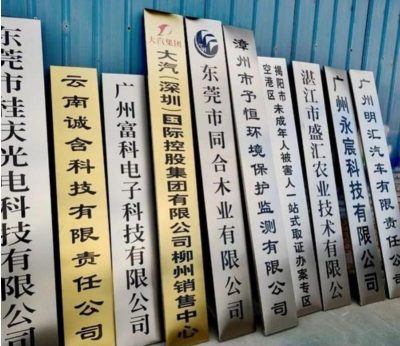 东莞市桂庆光电科技有限公司
云南诚含科技有限责任公司
广州富科电子科技有限公司
大汽集团
大汽(深圳)国际控股集团有限公司柳州销售中心
东莞市同合木业有限公司
漳州市予恒环境保护监测有限公司
揭阳市未成年人被害人一站式取证办案专区
空港区
湛江市盛汇农业技术有限公司
广州永宸科技有限公司
广州明汇汽车有限责任公司